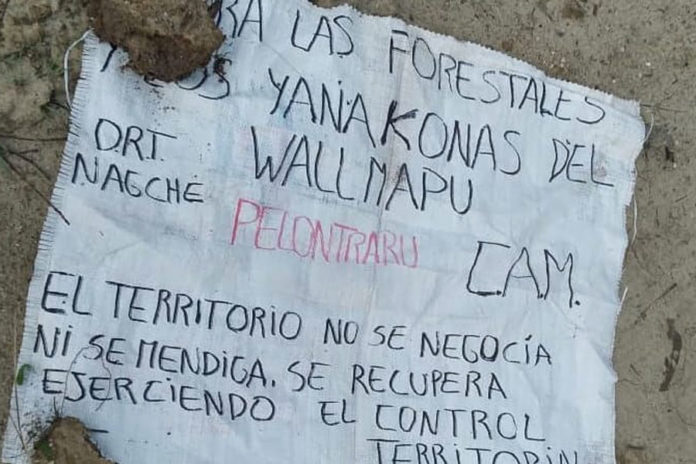 LAS FORESTALES
YANAKONAS DEL
WALLMAPU
ORT
NAGCHE
PELONTRARU
C.A.M.
EL TERRITORIO NO SE NEGOCÍA
NI SE MENDIGA. SE RECUPERA
EJERCIENDO EL CONTROL